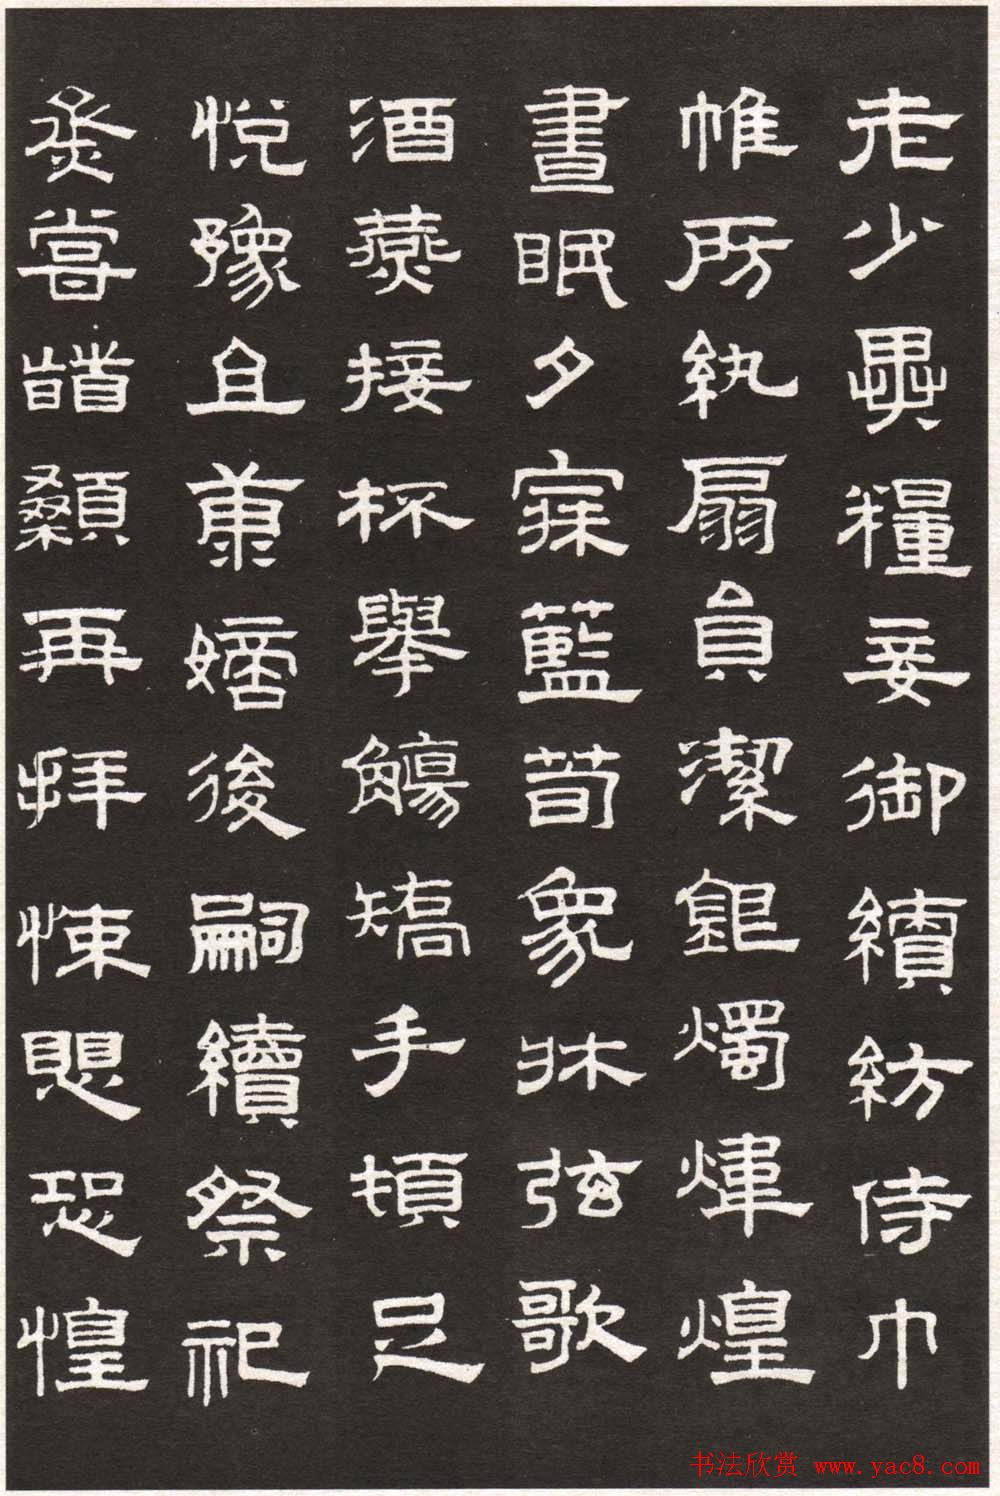 老少異糧妾御績紡侍巾
帷房紈扇員潔銀燭煒煌
晝眠夕寐藍筍象牀弦歌
酒燕接杯舉觴矯手頓足
悅豫且康嫡後嗣續祭祀
烝嘗稽顙再拜悚愳恐惶
书法欣赏 www.yac8.com